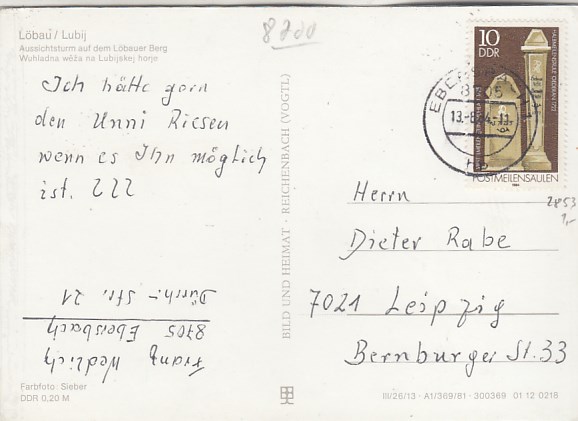 Löbau / Lubij
Aussichtsturm auf dem Löbauer Berg
Wuhladna wěža na Lubijskej horje
8700
Ich hätte gern
den Unni Riesen
wenn es Ihn möglich
ist.
Franz Wedlich
8705 Ebersbach
Str. 21
Farbfoto: Sieber
DDR 0,20 M
BILD UND HEIMAT · REICHENBACH (VOGTL)
10
DDR
POSTMEILENSÄULEN
8705
13.-8.84-11
2853
1,-
Herrn
Dieter Rabe
7021 Leipzig
Bernburger St. 33
III/26/13 · A1/369/81 · 300369 01 12 0218